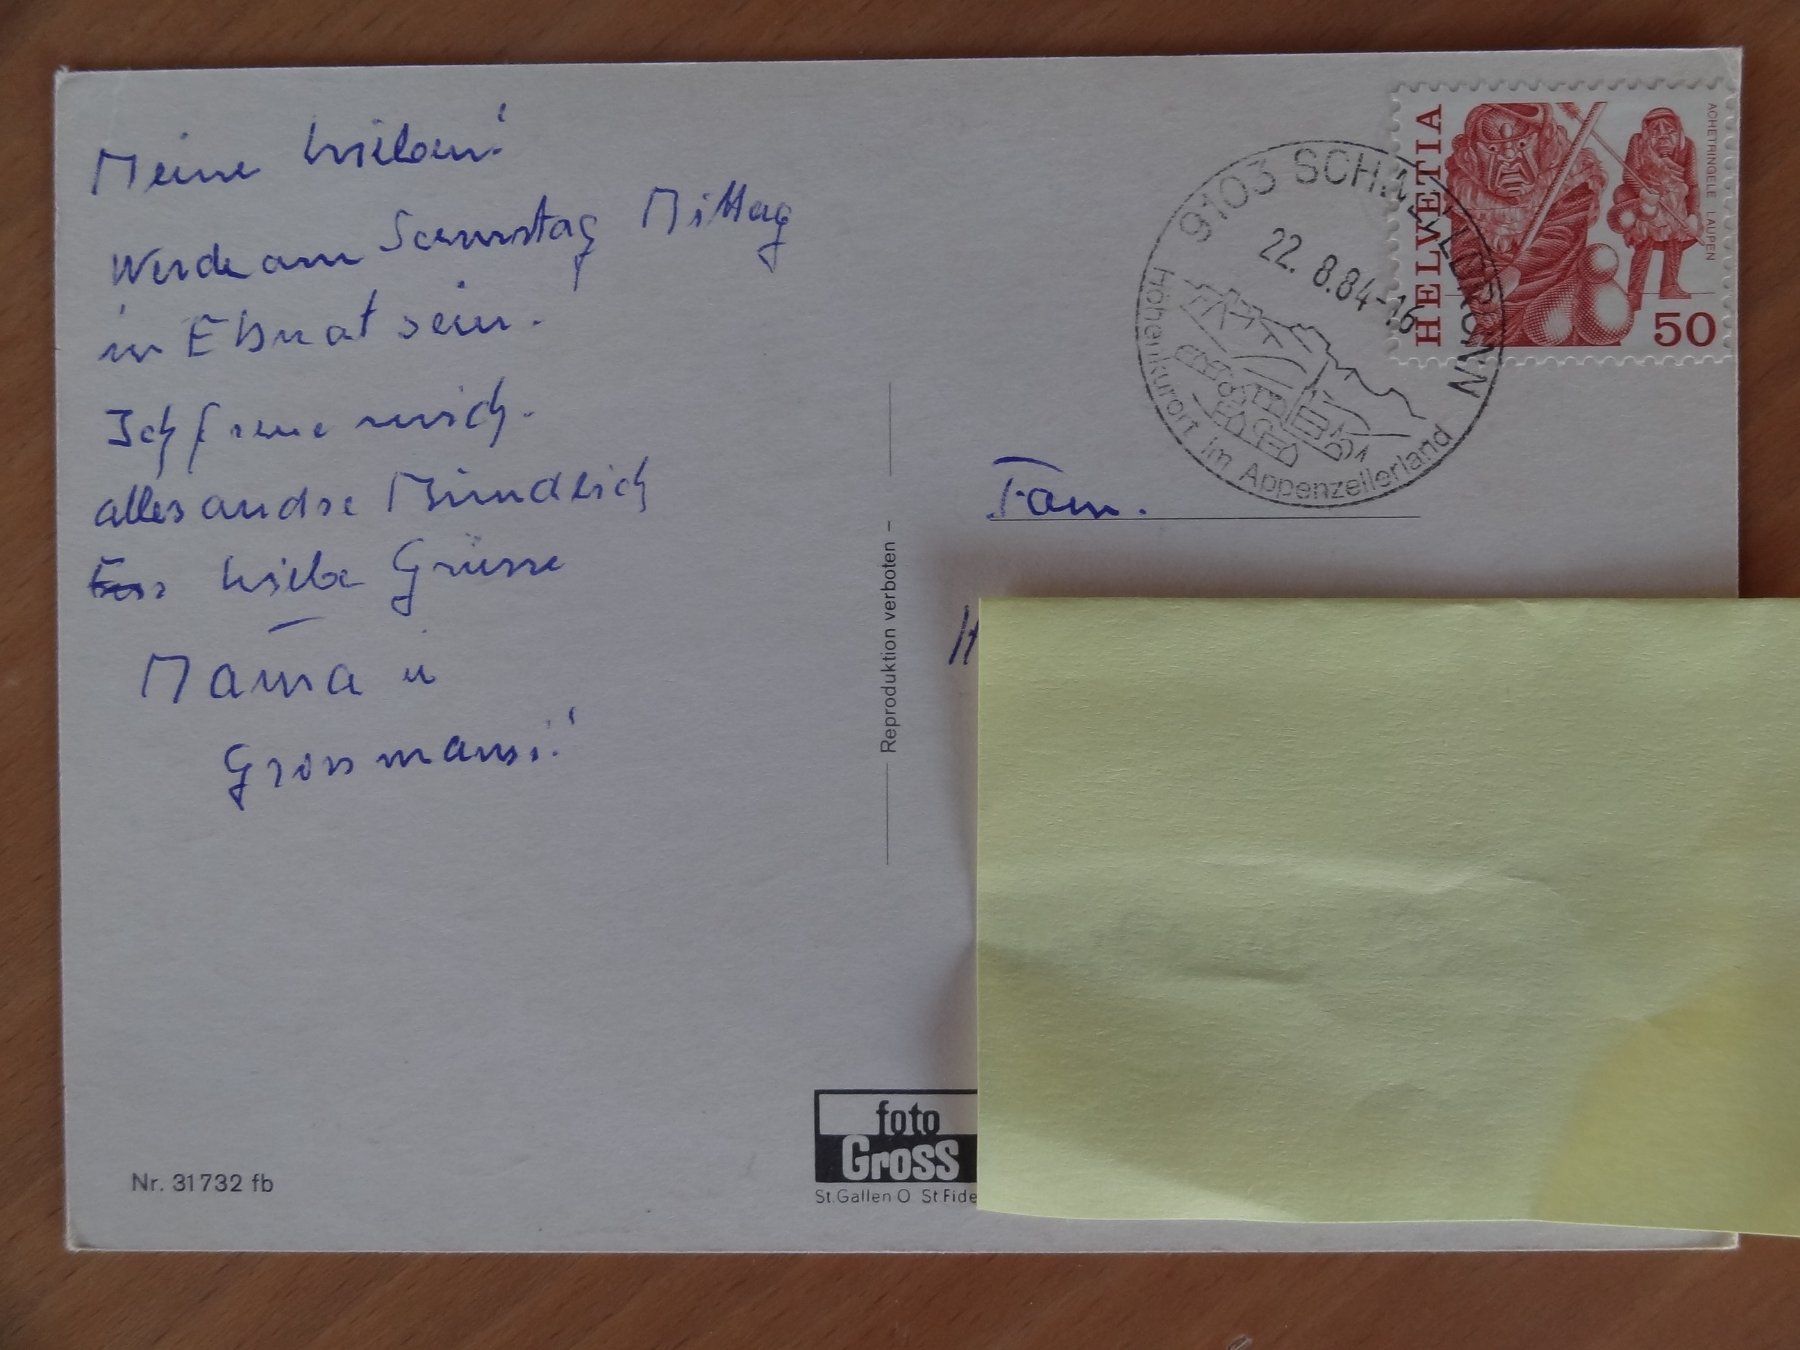 Meine Lieben!
Werde am Samstag Mittag
in Ebnat sein.
Ich freue mich.
alles andre Mündlich
Liebe Grüsse
Mama u
Grossmami!
Nr. 31732 fb
Reproduktion verboten
foto
Gross
St.Gallen O St Fide
9103 SCHWELLBRUNN
22. 8.84-16
Höhenkurort im Appenzellerland
HELVETIA
ACHETRINGELE LAUPEN
50
Fam.